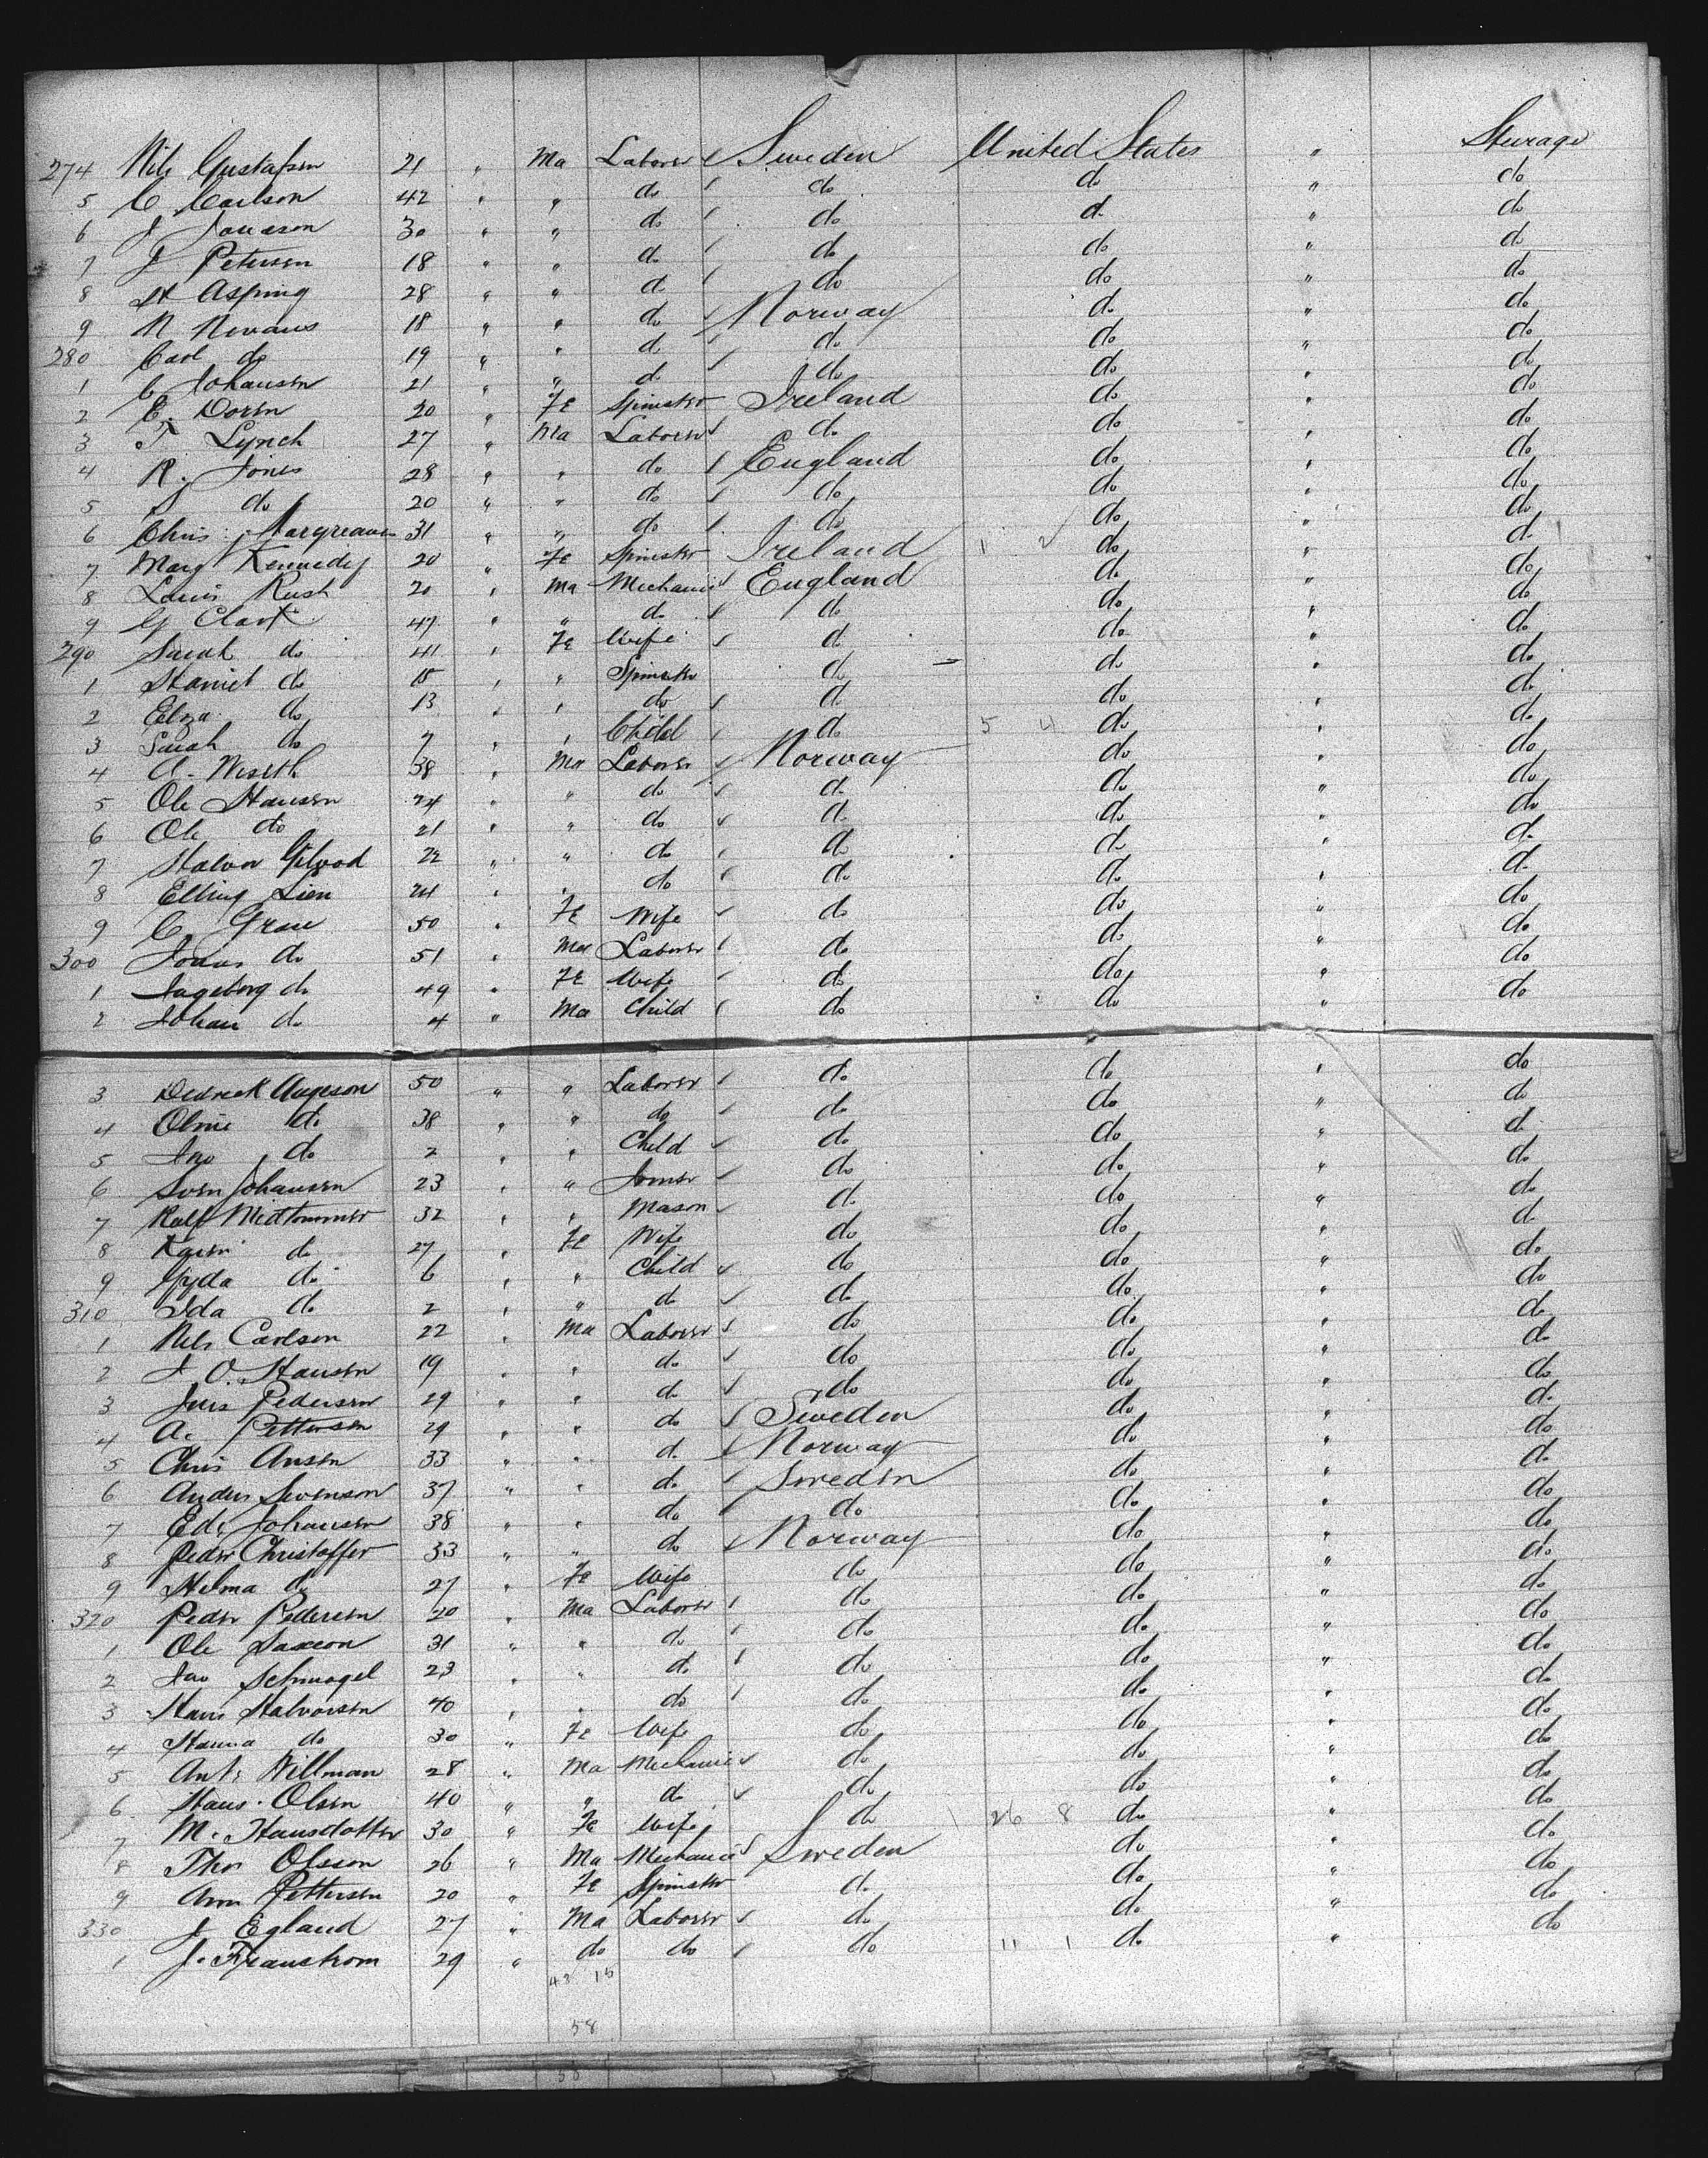 274 Nils Gustafsen 21 " Ma Laborer Sweden United States " Steerage
5 C Carlson 42 " " do do do " do
6 J 30 " " do do do " do
7 J Petersen 18 " " do do do " do
8 H Asping 28 " " do do do " do
9 N 18 " " do Norway do " do
280 Carl do 19 " " do do do " do
1 C. Johansen 21 " " do do do " do
2 E. Doren 20 " Fe Spinster Ireland do " do
3 T Lynch 27 " Ma Laborer do do " do
4 R. Jones 28 " " do England do " do
5 S do 20 " " do do do " do
6 Chris. Hargreaves 31 " " do do do " do
7 Mary Kennedy 20 " Fe Spinster Ireland 1 2 do " do
8 Louis Rush 20 " Ma Mechanic England do " do
9 G Clark 47 " " do do do " do
290 Sarah do 41 " Fe Wife do do " do
1 Harriet do 15 " " Spinster do do " do
2 Eliza do 13 " " do do do " do
3 Sarah do 7 " " Child do 5 4 do " do
4 A. Weseth 38 " Ma Laborer Norway do " do
5 Ole Hansen 24 " " do do do " do
6 Ole do 21 " " do do do " do
7 Halvor 22 " " do do do " do
8 Elling Lien 24 " " do do do " do
9 C. Grau 50 " Fe Wife do do " do
300 Jonas do 51 " Ma Laborer do do " do
1 Ingeborg do 49 " Fe Wife do do " do
2 Johan do 4 " Ma Child do do " do
3 Dedrick Augeson 50 " " Laborer do do " do
4 Oline do 38 " " do do do " do
5 Ino do 2 " " Child do do " do
6 Sven Johansen 23 " " Joiner do do " do
7 Ralf 32 " " Mason do do " do
8 Karen do 27 " Fe Wife do do " do
9 Gyda do 6 " " Child do do " do
310 Ida do 2 " " do do do " do
1 Nels Carlson 22 " Ma Laborer do do " do
2 J O. Hansen 19 " " do do do " do
3 Jens Pedersen 29 " " do do do " do
4 A. Pettersen 29 " " do Sweden do " do
5 Chris Ansen 33 " " do Norway do " do
6 Anders Swenson 37 " " do Sweden do " do
7 Ed. Johansen 38 " " do do do " do
8 Peder Christoffer 33 " " do Norway do " do
9 Helma do 27 " Fe Wife do do " do
320 Peder Pedersen 20 " Ma Laborer do do " do
1 Ole Saxeon 31 " " do do do " do
2 Ino Schmogel 23 " " do do do " do
3 Hans Halvorsen 40 " " do do do " do
4 Hanna do 30 " Fe Wife do do " do
5 Ant. Willman 28 " Ma Mechanic do do " do
6 Hans Olsen 40 " " do do do " do
7 M. Hansdotter 30 " Fe Wife do 26 8 do " do
8 Thor Olsson 26 " Ma Mechanic Sweden do " do
9 Ann Pettersen 20 " Fe Spinster do do " do
330 J Egland 27 " Ma Laborer do do " do
1 J. Franstrom 29 " do do do 11 1 do " do
43 15
58
58